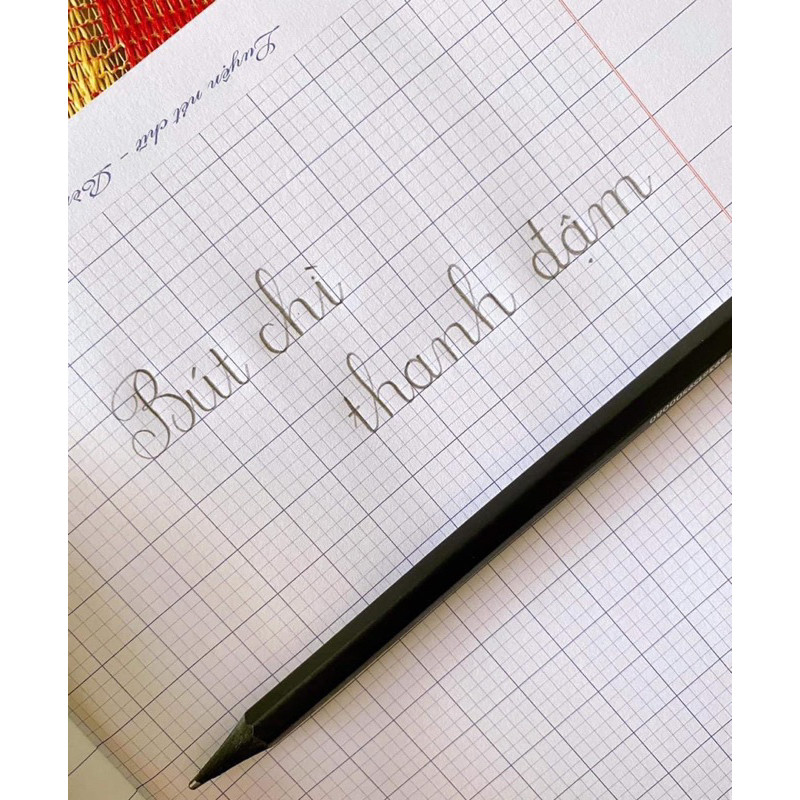 Luyện nét chữ - Rèn
Bút chì
thanh đậm